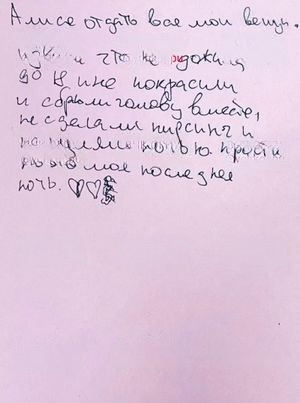 Алисе отдать все мои вещи.
что не дожила
до и не покрасили
и сбрыли голову вместе,
не сделали пирсинг и
ночью. прости
мое последнее
ночь.